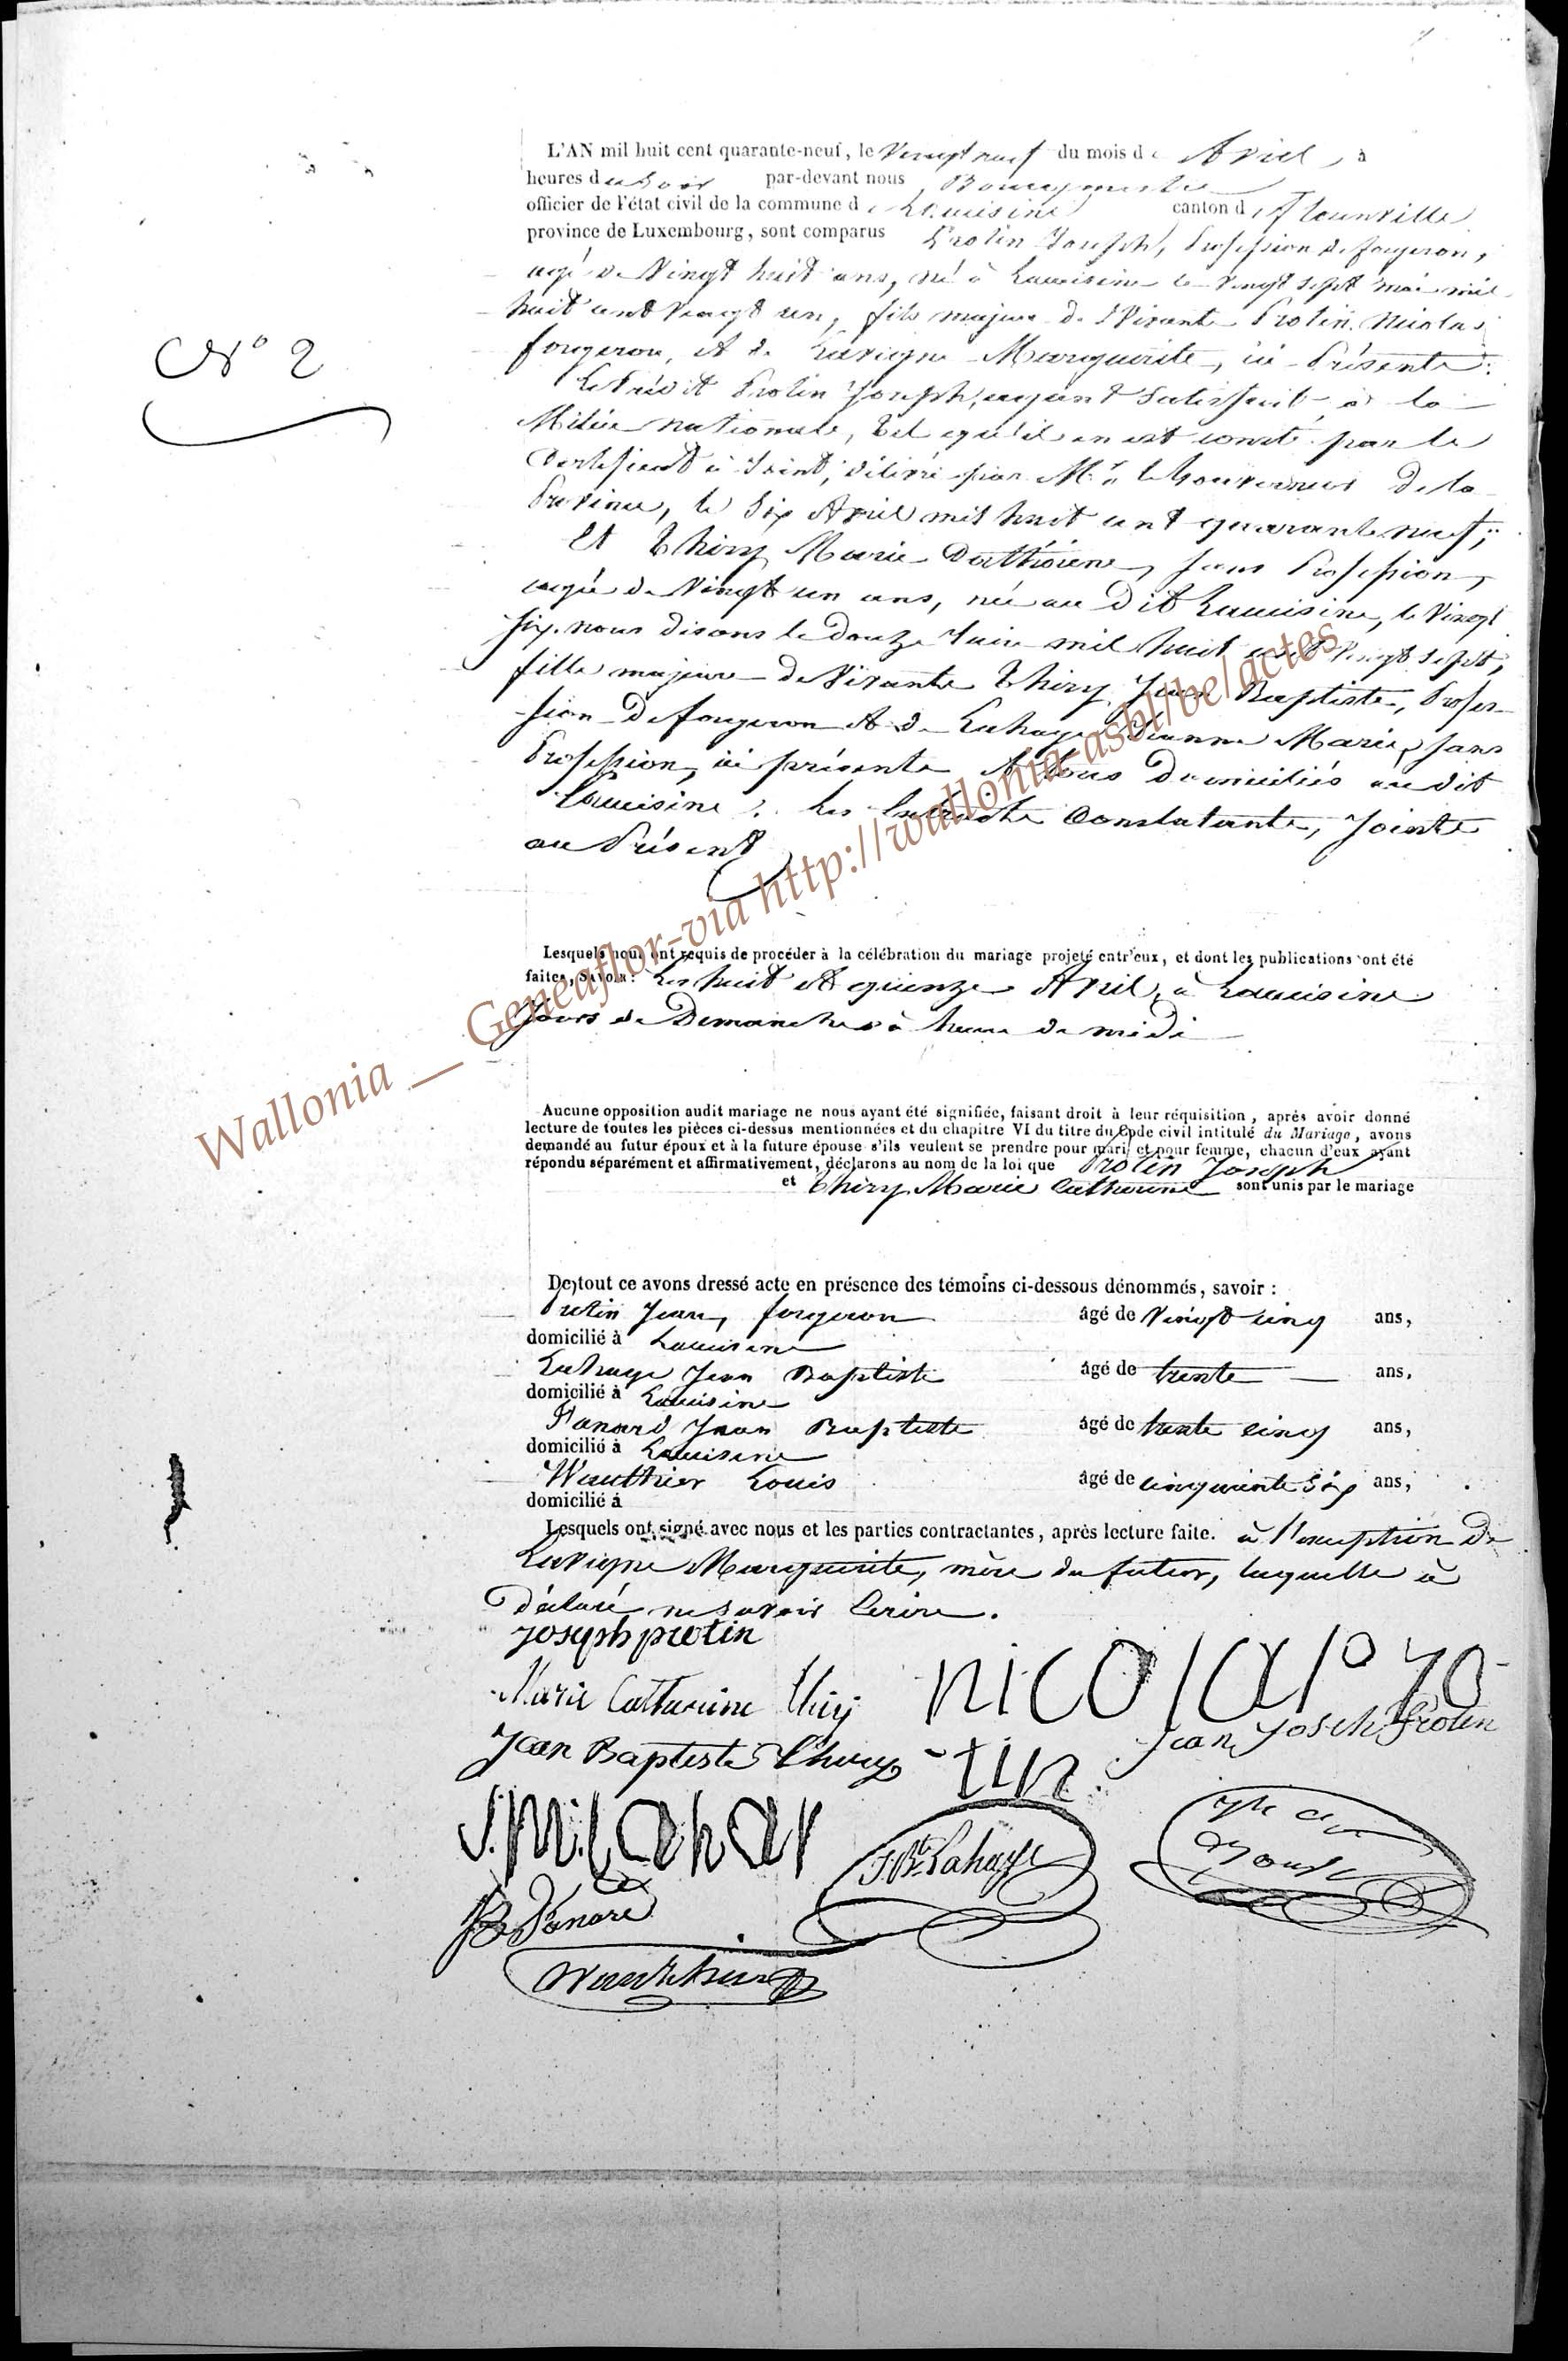 L'AN mil huit cent quarante-neuf, le Vingt neuf du mois d'Avril, à
heures du Soir par-devant nous Bourgmestre
officier de l'état civil de la commune de Lacuisine canton de Florenville
province de Luxembourg, sont comparus Protin Joseph, Profession de forgeron,
agé de Vingt huit ans, né à Lacuisine le vingt sept mai mil
huit cent vingt un, fils majeur de Vivante Protin Nicolas
forgeron, et de Lavigne Marguerite, ici Présente.
Le Prédit Protin Joseph, ayant Satisfait à la
Milice nationale, tel qu'il en est consté par le
Certificat ci Joint, délivré par Mr le Gouverneur de la
Province, le Six Avril mil huit cent quarante neuf;
Et Thiry Marie Catherine, sans Profession,
agée de Vingt un ans, née au dit Lacuisine, le Vingt
Six, nous disons le douze Juin mil huit cent vingt sept,
fille majeure de Vivante Thiry Jean Baptiste, Profes-
sion de forgeron et de Lahaye Jeanne Marie, sans
Profession, ici présente et tous Domiciliés au dit
Lacuisine. Les Extraits Constatants, Joints
au Présent
N° 2
Lesquels nous ont requis de procéder à la célébration du mariage projeté entr'eux, et dont les publications ont été
faites, savoir: Les huit et quinze Avril, à Lacuisine
Jours de Dimanches à heure de midi
Aucune opposition audit mariage ne nous ayant été signifiée, faisant droit à leur réquisition, après avoir donné
lecture de toutes les pièces ci-dessus mentionnées et du chapitre VI du titre du Code civil intitulé du Mariage, avons
demandé au futur époux et à la future épouse s'ils veulent se prendre pour mari et pour femme, chacun d'eux ayant
répondu séparément et affirmativement, déclarons au nom de la loi que Protin Joseph
et Thiry Marie Catherine sont unis par le mariage
De tout ce avons dressé acte en présence des témoins ci-dessous dénommés, savoir :
Protin Jean, forgeron âgé de Vingt cinq ans,
domicilié à Lacuisine
Lahaye Jean Baptiste âgé de trente ans,
domicilié à Lacuisine
Panard Jean Baptiste âgé de trente cinq ans,
domicilié à Lacuisine
Wauthier Louis âgé de cinquante Six ans,
domicilié à
Lesquels ont signé avec nous et les parties contractantes, après lecture faite. à l'exception de
Lavigne Marguerite, mère du futur, laquelle a
Déclaré ne savoir Ecrire.
joseph protin
Marie Catharine thiry
nicolas
Jean Joseph Protin
Jean Baptiste Thiry
tin
J.M. Lahay
J.Bte Lahaye
JB Panard
Wauthier
Wallonia __ Geneaflor-via http://wallonia-asbl/be/actes